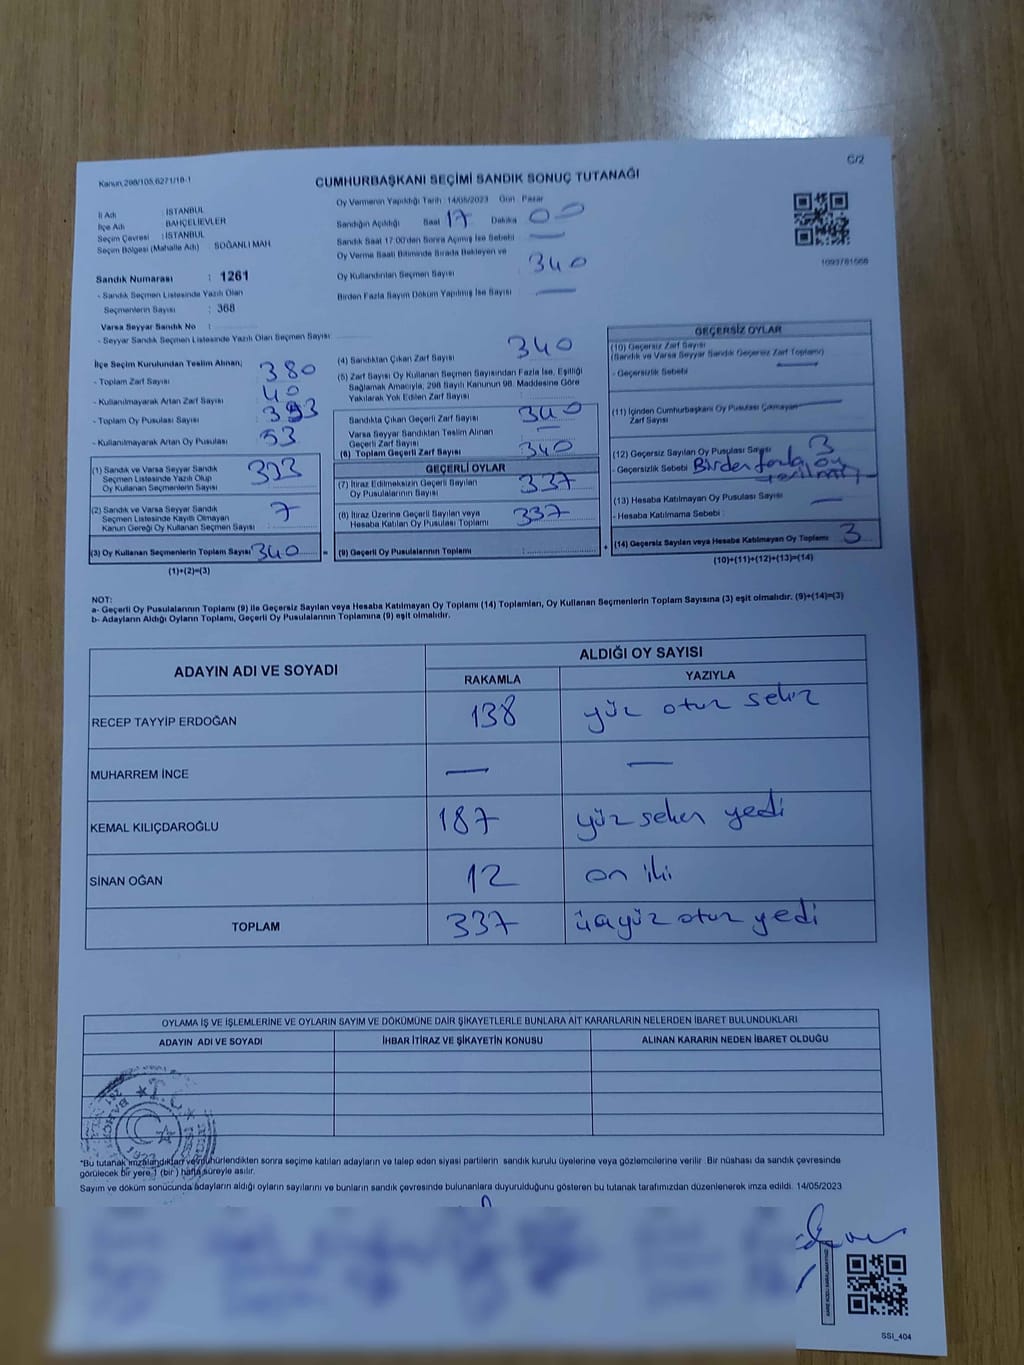 C/2
Kanun,298/105,6271/18-1
CUMHURBAŞKANI SEÇİMİ SANDIK SONUÇ TUTANAĞI
İl Adı : İSTANBUL
İlçe Adı : BAHÇELİEVLER
Seçim Çevresi : İSTANBUL
Seçim Bölgesi (Mahalle Adı) : SOĞANLI MAH
Sandık Numarası : 1261
- Sandık Seçmen Listesinde Yazılı Olan
Seçmenlerin Sayısı : 368
Varsa Seyyar Sandık No :
- Seyyar Sandık Seçmen Listesinde Yazılı Olan Seçmen Sayısı
Oy Vermenin Yapıldığı Tarih : 14/05/2023 Gün : Pazar
Sandığın Açıldığı Saat 17 Dakika 00
Sandık Saat 17:00'den Sonra Açılmış İse Sebebi
Oy Verme Saati Bitiminde Sırada Bekleyen ve
Oy Kullandırılan Seçmen Sayısı 340
Birden Fazla Sayım Döküm Yapılmış İse Sayısı
1093781568
İlçe Seçim Kurulundan Teslim Alınan;
- Toplam Zarf Sayısı 380
- Kullanılmayarak Artan Zarf Sayısı 40
- Toplam Oy Pusulası Sayısı : 393
- Kullanılmayarak Artan Oy Pusulası 53
(1) Sandık ve Varsa Seyyar Sandık
Seçmen Listesinde Yazılı Olup
Oy Kullanan Seçmenlerin Sayısı 333
(2) Sandık ve Varsa Seyyar Sandık
Seçmen Listesinde Kayıtlı Olmayan
Kanun Gereği Oy Kullanan Seçmen Sayısı 7
(3) Oy Kullanan Seçmenlerin Toplam Sayısı 340
(1)+(2)=(3)
(4) Sandıktan Çıkan Zarf Sayısı 340
(5) Zarf Sayısı Oy Kullanan Seçmen Sayısından Fazla İse, Eşitliği
Sağlamak Amacıyla, 298 Sayılı Kanunun 98. Maddesine Göre
Yakılarak Yok Edilen Zarf Sayısı :
Sandıkta Çıkan Geçerli Zarf Sayısı 340
Varsa Seyyar Sandıktan Teslim Alınan
Geçerli Zarf Sayısı
(6) Toplam Geçerli Zarf Sayısı 340
GEÇERLİ OYLAR
(7) İtiraz Edilmeksizin Geçerli Sayılan
Oy Pusulalarının Sayısı 337
(8) İtiraz Üzerine Geçerli Sayılan veya
Hesaba Katılan Oy Pusulası Toplamı 337
(9) Geçerli Oy Pusulalarının Toplamı :
GEÇERSİZ OYLAR
(10) Geçersiz Zarf Sayısı
(Sandık ve Varsa Seyyar Sandık Geçersiz Zarf Toplamı)
- Geçersizlik Sebebi
(11) İçinden Cumhurbaşkanı Oy Pusulası Çıkmayan
Zarf Sayısı
(12) Geçersiz Sayılan Oy Pusulası Sayısı 3
- Geçersizlik Sebebi Birden fazla oy
verilmesi
(13) Hesaba Katılmayan Oy Pusulası Sayısı
- Hesaba Katılmama Sebebi :
(14) Geçersiz Sayılan veya Hesaba Katılmayan Oy Toplamı 3
(10)+(11)+(12)+(13)=(14)
NOT:
a- Geçerli Oy Pusulalarının Toplamı (9) ile Geçersiz Sayılan veya Hesaba Katılmayan Oy Toplamı (14) Toplamları, Oy Kullanan Seçmenlerin Toplam Sayısına (3) eşit olmalıdır. (9)+(14)=(3)
b- Adayların Aldığı Oyların Toplamı, Geçerli Oy Pusulalarının Toplamına (9) eşit olmalıdır.
ADAYIN ADI VE SOYADI
ALDIĞI OY SAYISI
RAKAMLA YAZIYLA
RECEP TAYYİP ERDOĞAN 138 yüz otuz sekiz
MUHARREM İNCE
KEMAL KILIÇDAROĞLU 187 yüz seksen yedi
SİNAN OĞAN 12 on iki
TOPLAM 337 üçyüz otuz yedi
OYLAMA İŞ VE İŞLEMLERİNE VE OYLARIN SAYIM VE DÖKÜMÜNE DAİR ŞİKAYETLERLE BUNLARA AİT KARARLARIN NELERDEN İBARET BULUNDUKLARI
ADAYIN ADI VE SOYADI İHBAR İTİRAZ VE ŞİKAYETİN KONUSU ALINAN KARARIN NEDEN İBARET OLDUĞU
T.C.
1923
*Bu tutanak imzalandıktan ve mühürlendikten sonra seçime katılan adayların ve talep eden siyasi partilerin sandık kurulu üyelerine veya gözlemcilerine verilir. Bir nüshası da sandık çevresinde
görülecek bir yere 1 (bir) hafta süreyle asılır.
Sayım ve döküm sonucunda adayların aldığı oyların sayılarını ve bunların sandık çevresinde bulunanlara duyurulduğunu gösteren bu tutanak tarafımızdan düzenlenerek imza edildi. 14/05/2023
KARE KODU KARALAMAYINIZ!
SSI_404